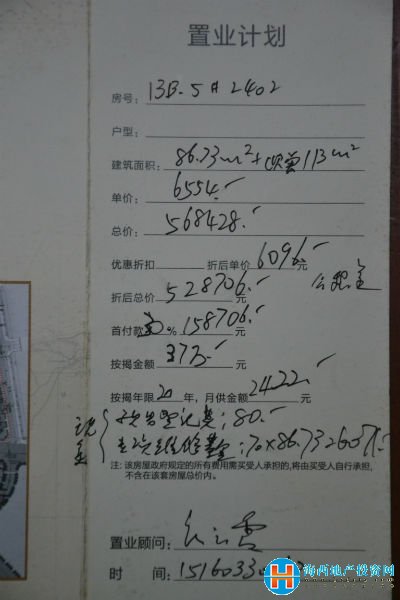 置业计划
房号: 13B-5# 2402
户型:
建筑面积: 86.73m²+ 113m²
单价: 6554.-
总价: 568428.-
优惠折扣 折后单价 6096.-元
折后总价 528706.-元 公积金
首付款 30% 158706.-元
按揭金额 37万.-元
按揭年限 20 年,月供金额 2422.-元
现金
费: 80.-
维修基金: 70×86.73
注: 该房屋政府规定的所有费用需买受人承担的,将由买受人自行承担,
不含在该套房屋总价内。
置业顾问:
时 间: 1516033
海西地产投资网